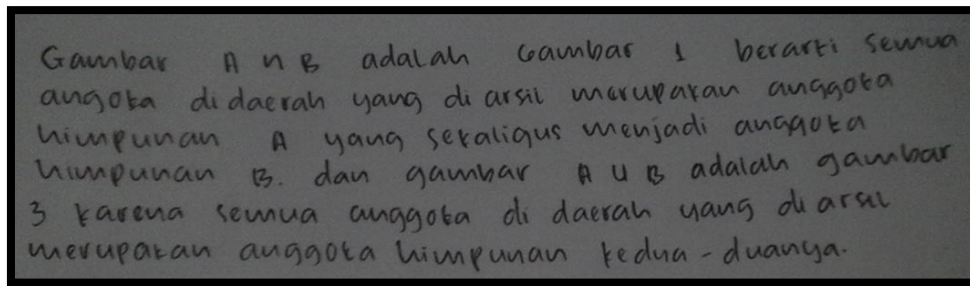 Gambar A ∩ B adalah Gambar 1 berarti semua
anggota didaerah yang di arsil merupakan anggota
himpunan A yang sekaligus menjadi anggota
himpunan B. dan gambar A ∪ B adalah gambar
3 karena semua anggota di daerah yang di arsil
merupakan anggota himpunan kedua-duanya.